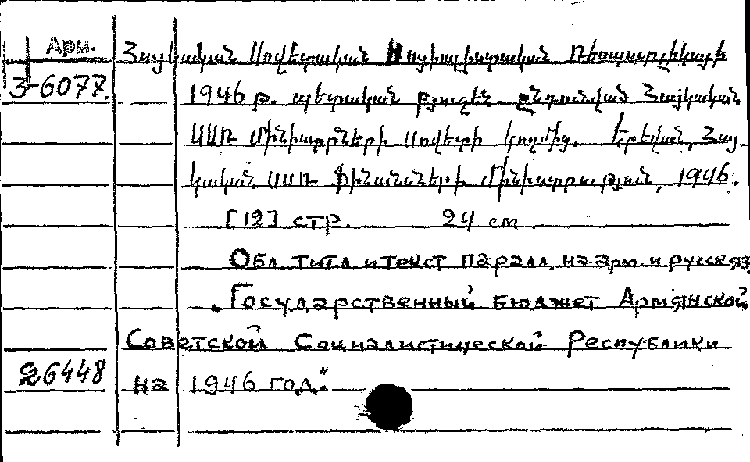 Арм. Հայկական Սովետական Սոցիալիստական Ռեսպուբլիկայի
3-6077. 1946 թ. պետական բյուջեն ընդունված Հայկական
ՍՍՌ Մինիստրների Սովետի կողմից. Երեվան, Հայ-
կական ՍՍՌ Ֆինանսների Մինիստրություն, 1946.
[12] стр. 24 cm
Обл. титл. и текст паралл. на арм. и русск. яз.
„Государственный бюджет Армянской
Советской Социалистической Республики
26448 на 1946 год."